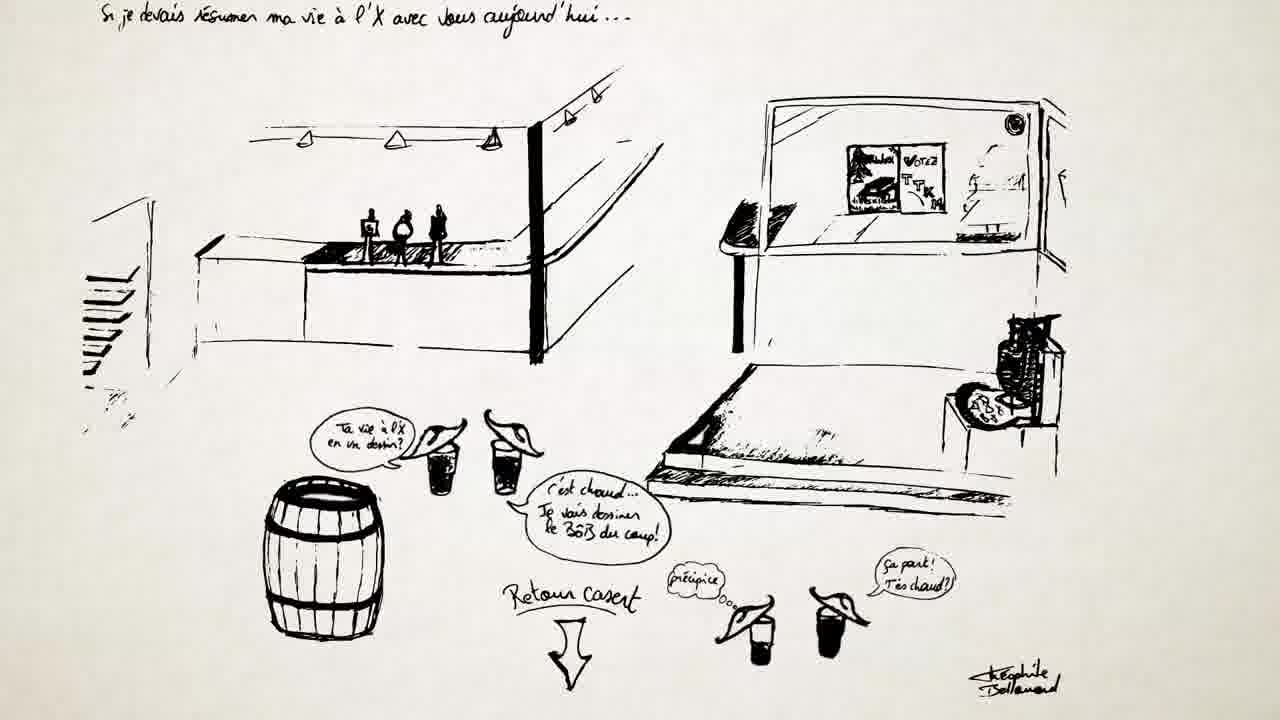 Si je devais résumer ma vie à l'X avec vous aujourd'hui...
VOTEZ
Ta vie à l'X
en un dessin?
C'est chaud...
Je vais dessiner
le BôB du coup!
Retour Casert
précipice
ça part!
T'es chaud?!
Théophile